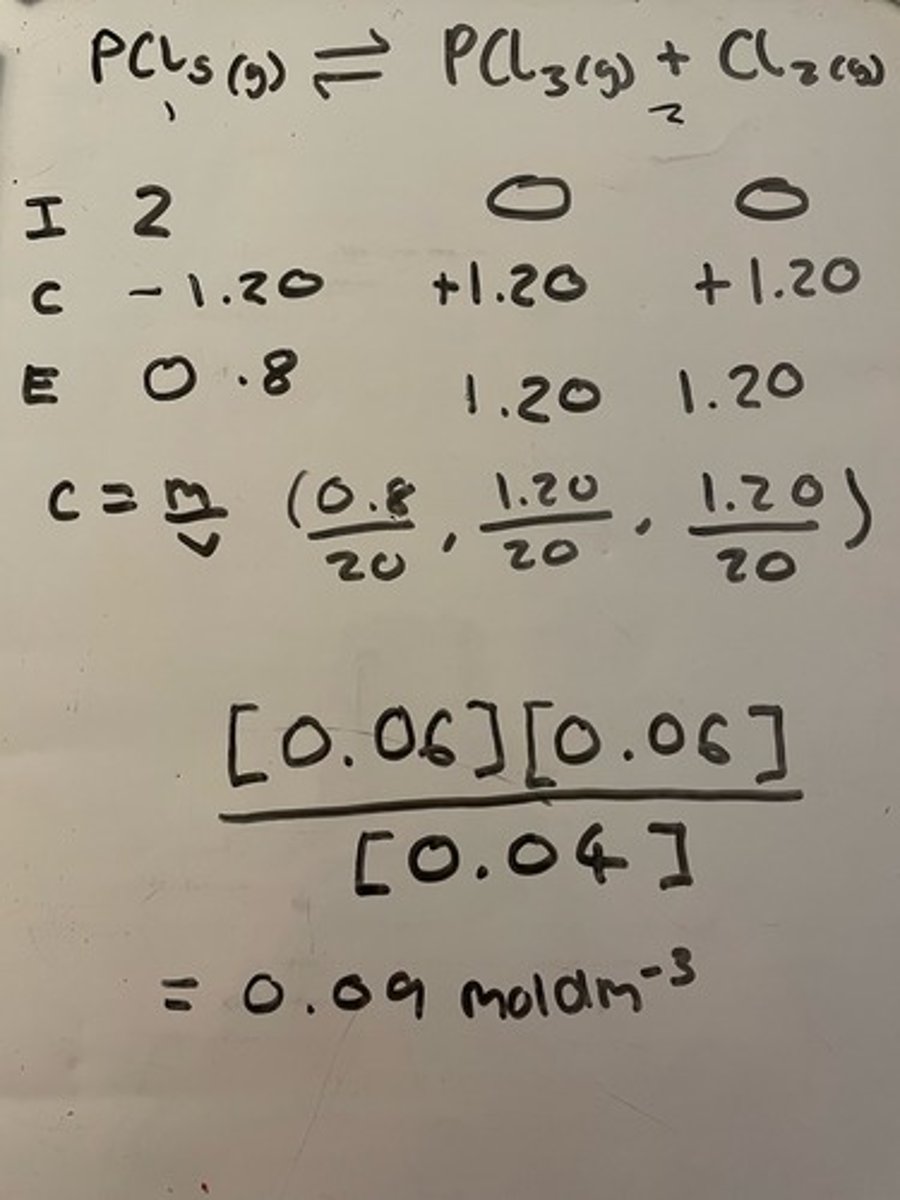 PCl₅(g) ⇌ PCl₃(g) + Cl₂(g)
1 2
I 2 0 0
C -1.20 +1.20 +1.20
E 0.8 1.20 1.20
C = m/v (0.8/20, 1.20/20, 1.20/20)
[0.06][0.06]
[0.04]
= 0.09 moldm⁻³